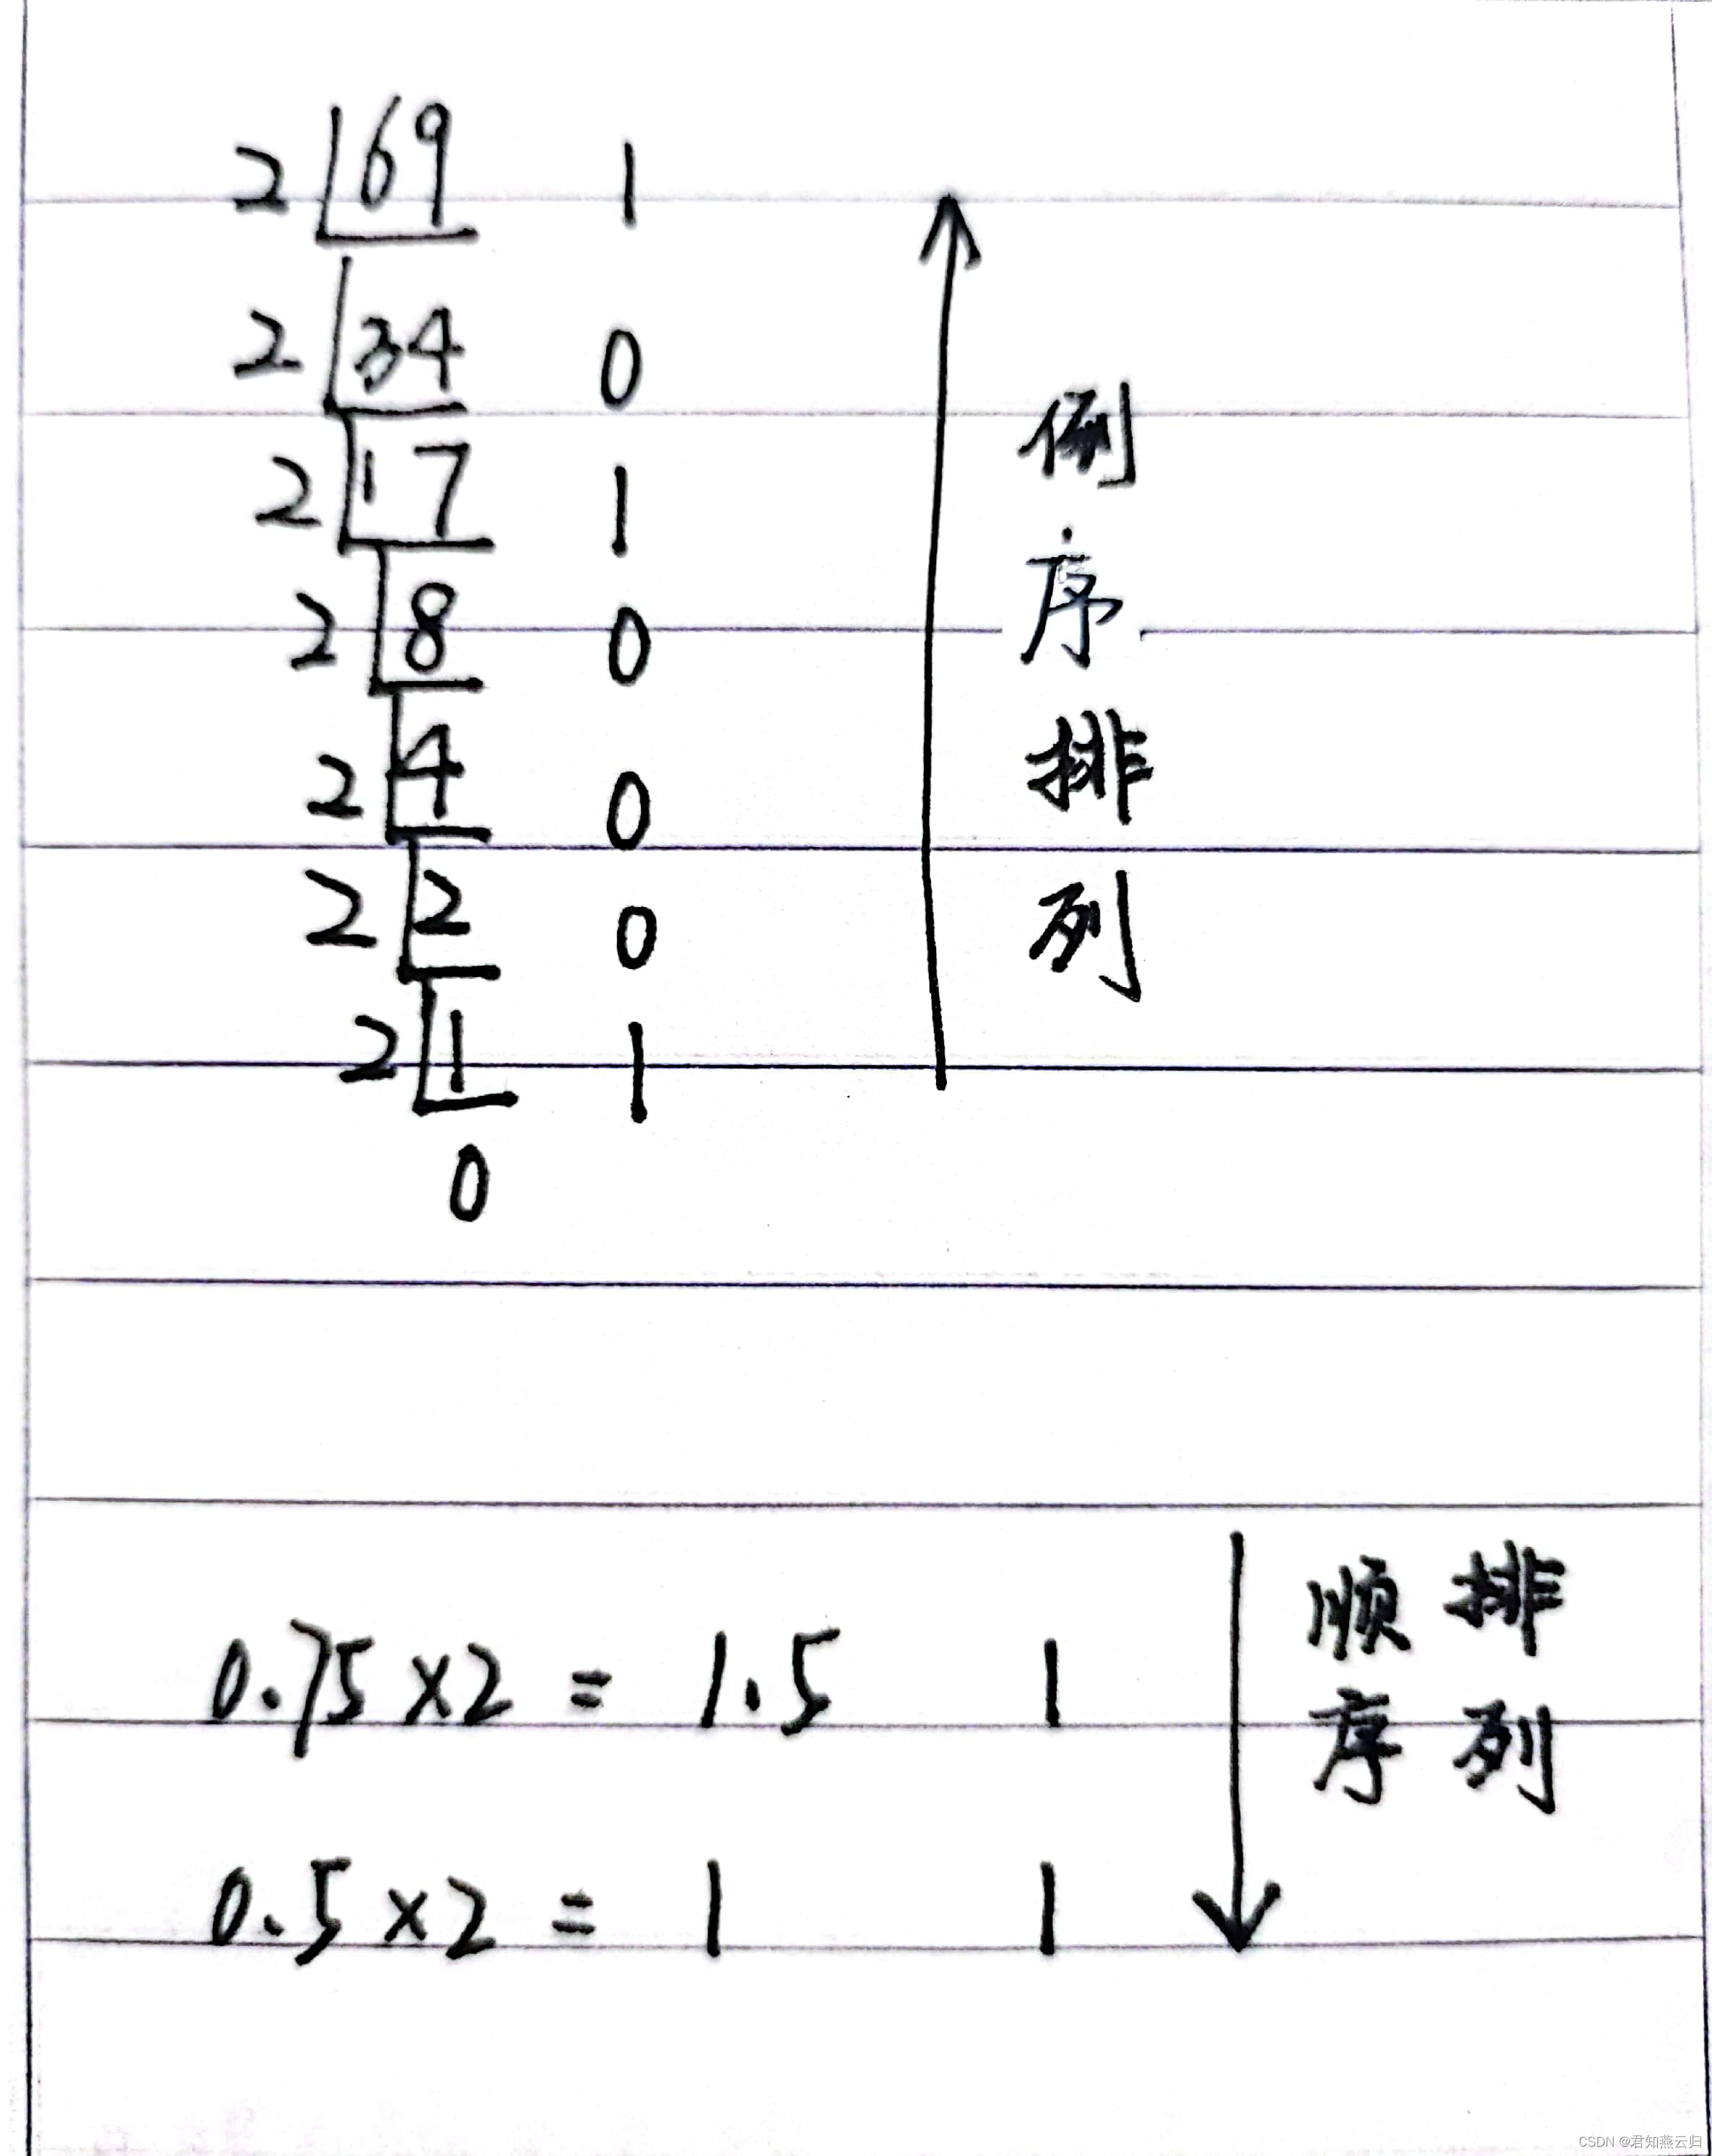 2 69 1
2 34 0
2 17 1
2 8 0
2 4 0
2 2 0
2 1 1
0
倒序排列
0.75×2 = 1.5 1
0.5×2 = 1 1
顺序排列
CSDN @君知燕云归